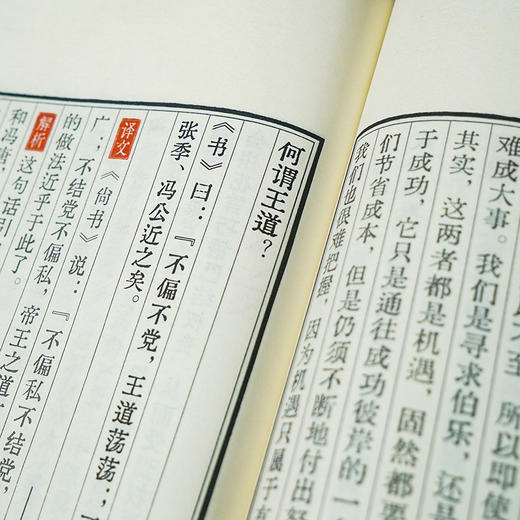 不至，所以即使
难成大事。我们是寻求伯乐，还是
其实，这两者都是机遇，固然都要
于成功，它只是通往成功彼岸的一
们节省成本，但是仍须不断地付出努
我们也很难把握，因为机遇只属于
何谓王道？
《书》曰：『不偏不党，王道荡荡；
张季、冯公近之矣。
译文 《尚书》说：『不偏私不结党，
广；不结党不偏私，帝王之道
的做法近乎于此了。
解析 这句话引
和冯唐，